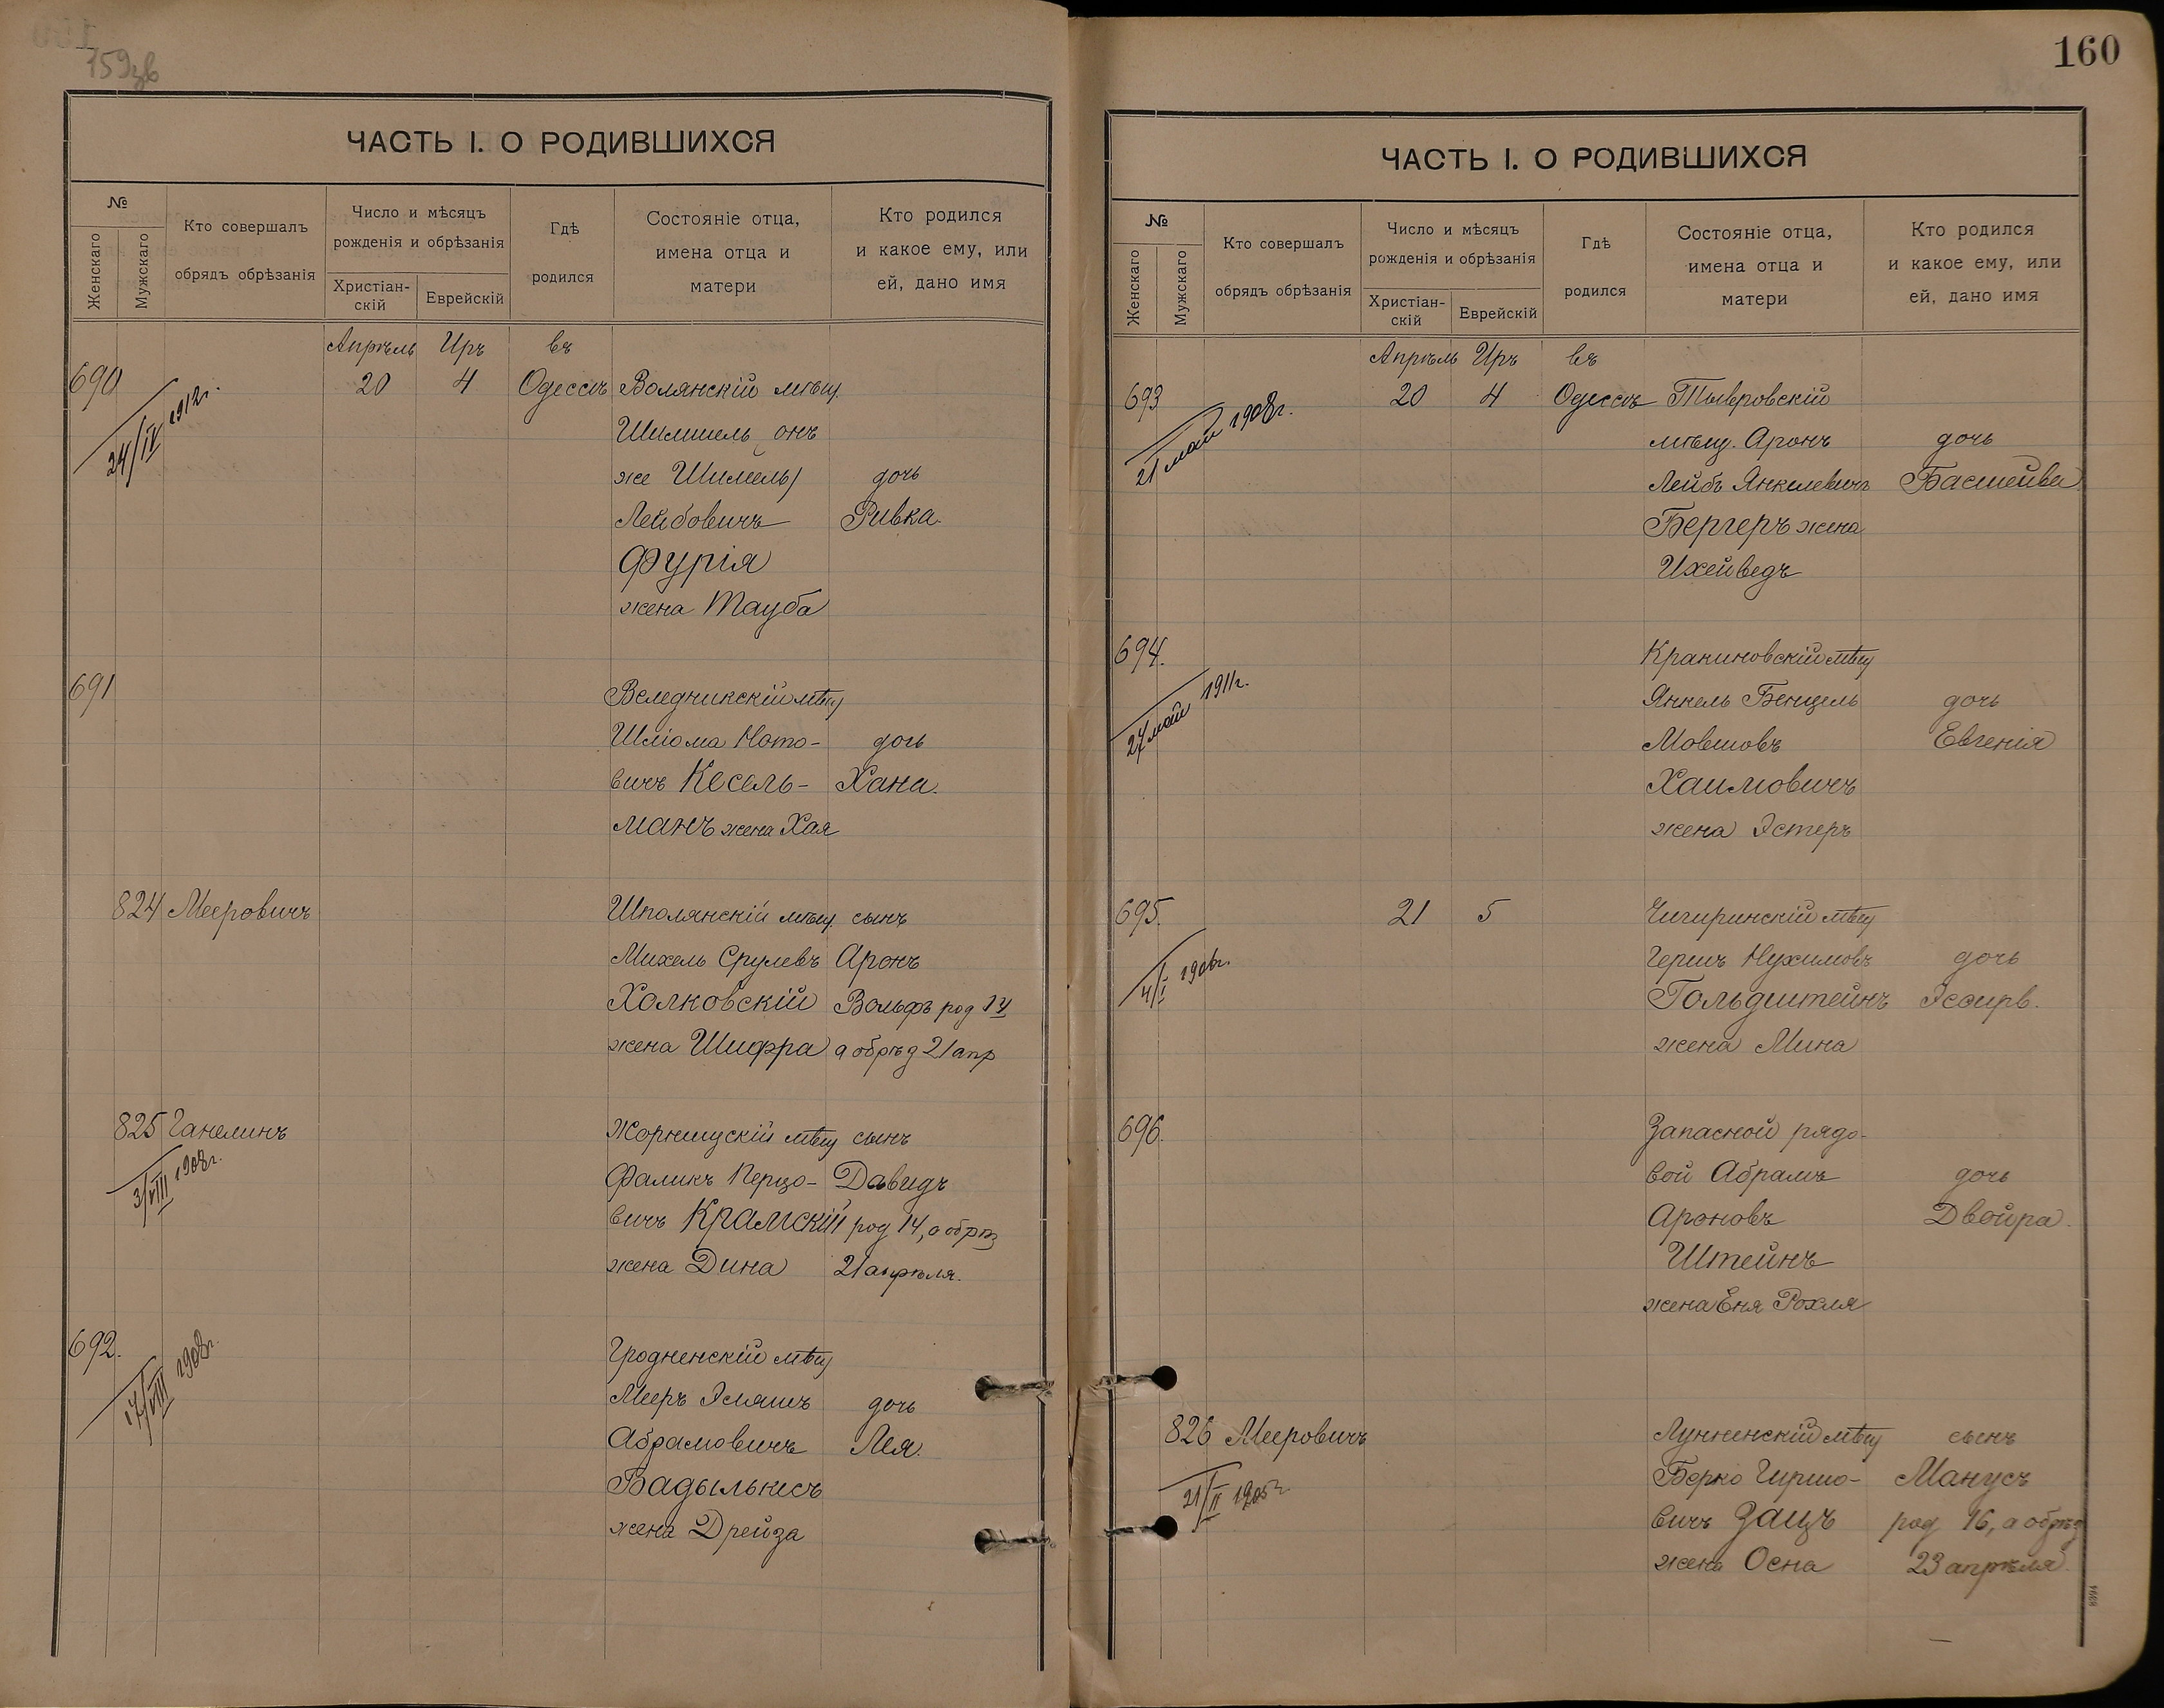 159зв
ЧАСТЬ I. О РОДИВШИХСЯ
№
Женскаго
Мужскаго
Кто совершалъ
обрядъ обрѣзанія
Число и мѣсяцъ
рожденія и обрѣзанія
Христіан-
скій
Еврейскій
Гдѣ
родился
Состояніе отца,
имена отца и
матери
Кто родился
и какое ему, или
ей, дано имя
Апрѣль Иръ въ
690 20 4 Одессѣ Волянскій мѣщ.
24/IV 1912г.
Шимшель онъ
же Шимель) дочь
Лейбовичъ Ривка.
Фурія
жена Тауба
691 Веледникскій мѣщ
Шліома Ното- дочь
вичъ Кесель- Хана.
манъ жена Хая
824 Мееровичъ Шполянскій мѣщ. сынъ
Михель Срулевъ Аронъ
Холковскій Вольфъ род 14
жена Шифра а обрѣз 21 апр
825 Ганелинъ Жорнищскій мѣщ сынъ
3/VIII 1908г.
Фаликъ Перцо- Давидъ
вичъ Крамскій род 14, а обрѣз
жена Дина 21 апрѣля.
692. Гродненскій мѣщ
17/VIII 1908г.
Мееръ Эльяшъ дочь
Абрамовичъ Лея.
Вадылькесъ
жена Дрейза
160
ЧАСТЬ I. О РОДИВШИХСЯ
№
Женскаго
Мужскаго
Кто совершалъ
обрядъ обрѣзанія
Число и мѣсяцъ
рожденія и обрѣзанія
Христіан-
скій
Еврейскій
Гдѣ
родился
Состояніе отца,
имена отца и
матери
Кто родился
и какое ему, или
ей, дано имя
Апрѣль Иръ въ
693 20 4 Одессѣ Тывровскій
21 май 1908г.
мѣщ. Аронъ дочь
Лейбъ Янкелевичъ Басшейва
Бергеръ жена
Ихейведъ
694. мѣщ
27 май 1911г.
Янкель Бенцель дочь
Мовшовъ Евгенія
Хаимовичъ
жена Эстеръ
695. 21 5 Чигиринскій мѣщ
4/I 1906г.
Гершъ Нухимовъ дочь
Гольдштейнъ
жена Мина
696. Запасной рядо-
вой Абрамъ дочь
Ароновъ Двойра.
Штейнъ
жена Еня Рохля
826 Мееровичъ Лунненскій мѣщ сынъ
21/II 1905г.
Берко Гиршо- Манусъ
вичъ Зацъ род 16, а обрѣз
жена Осна 23 апрѣля